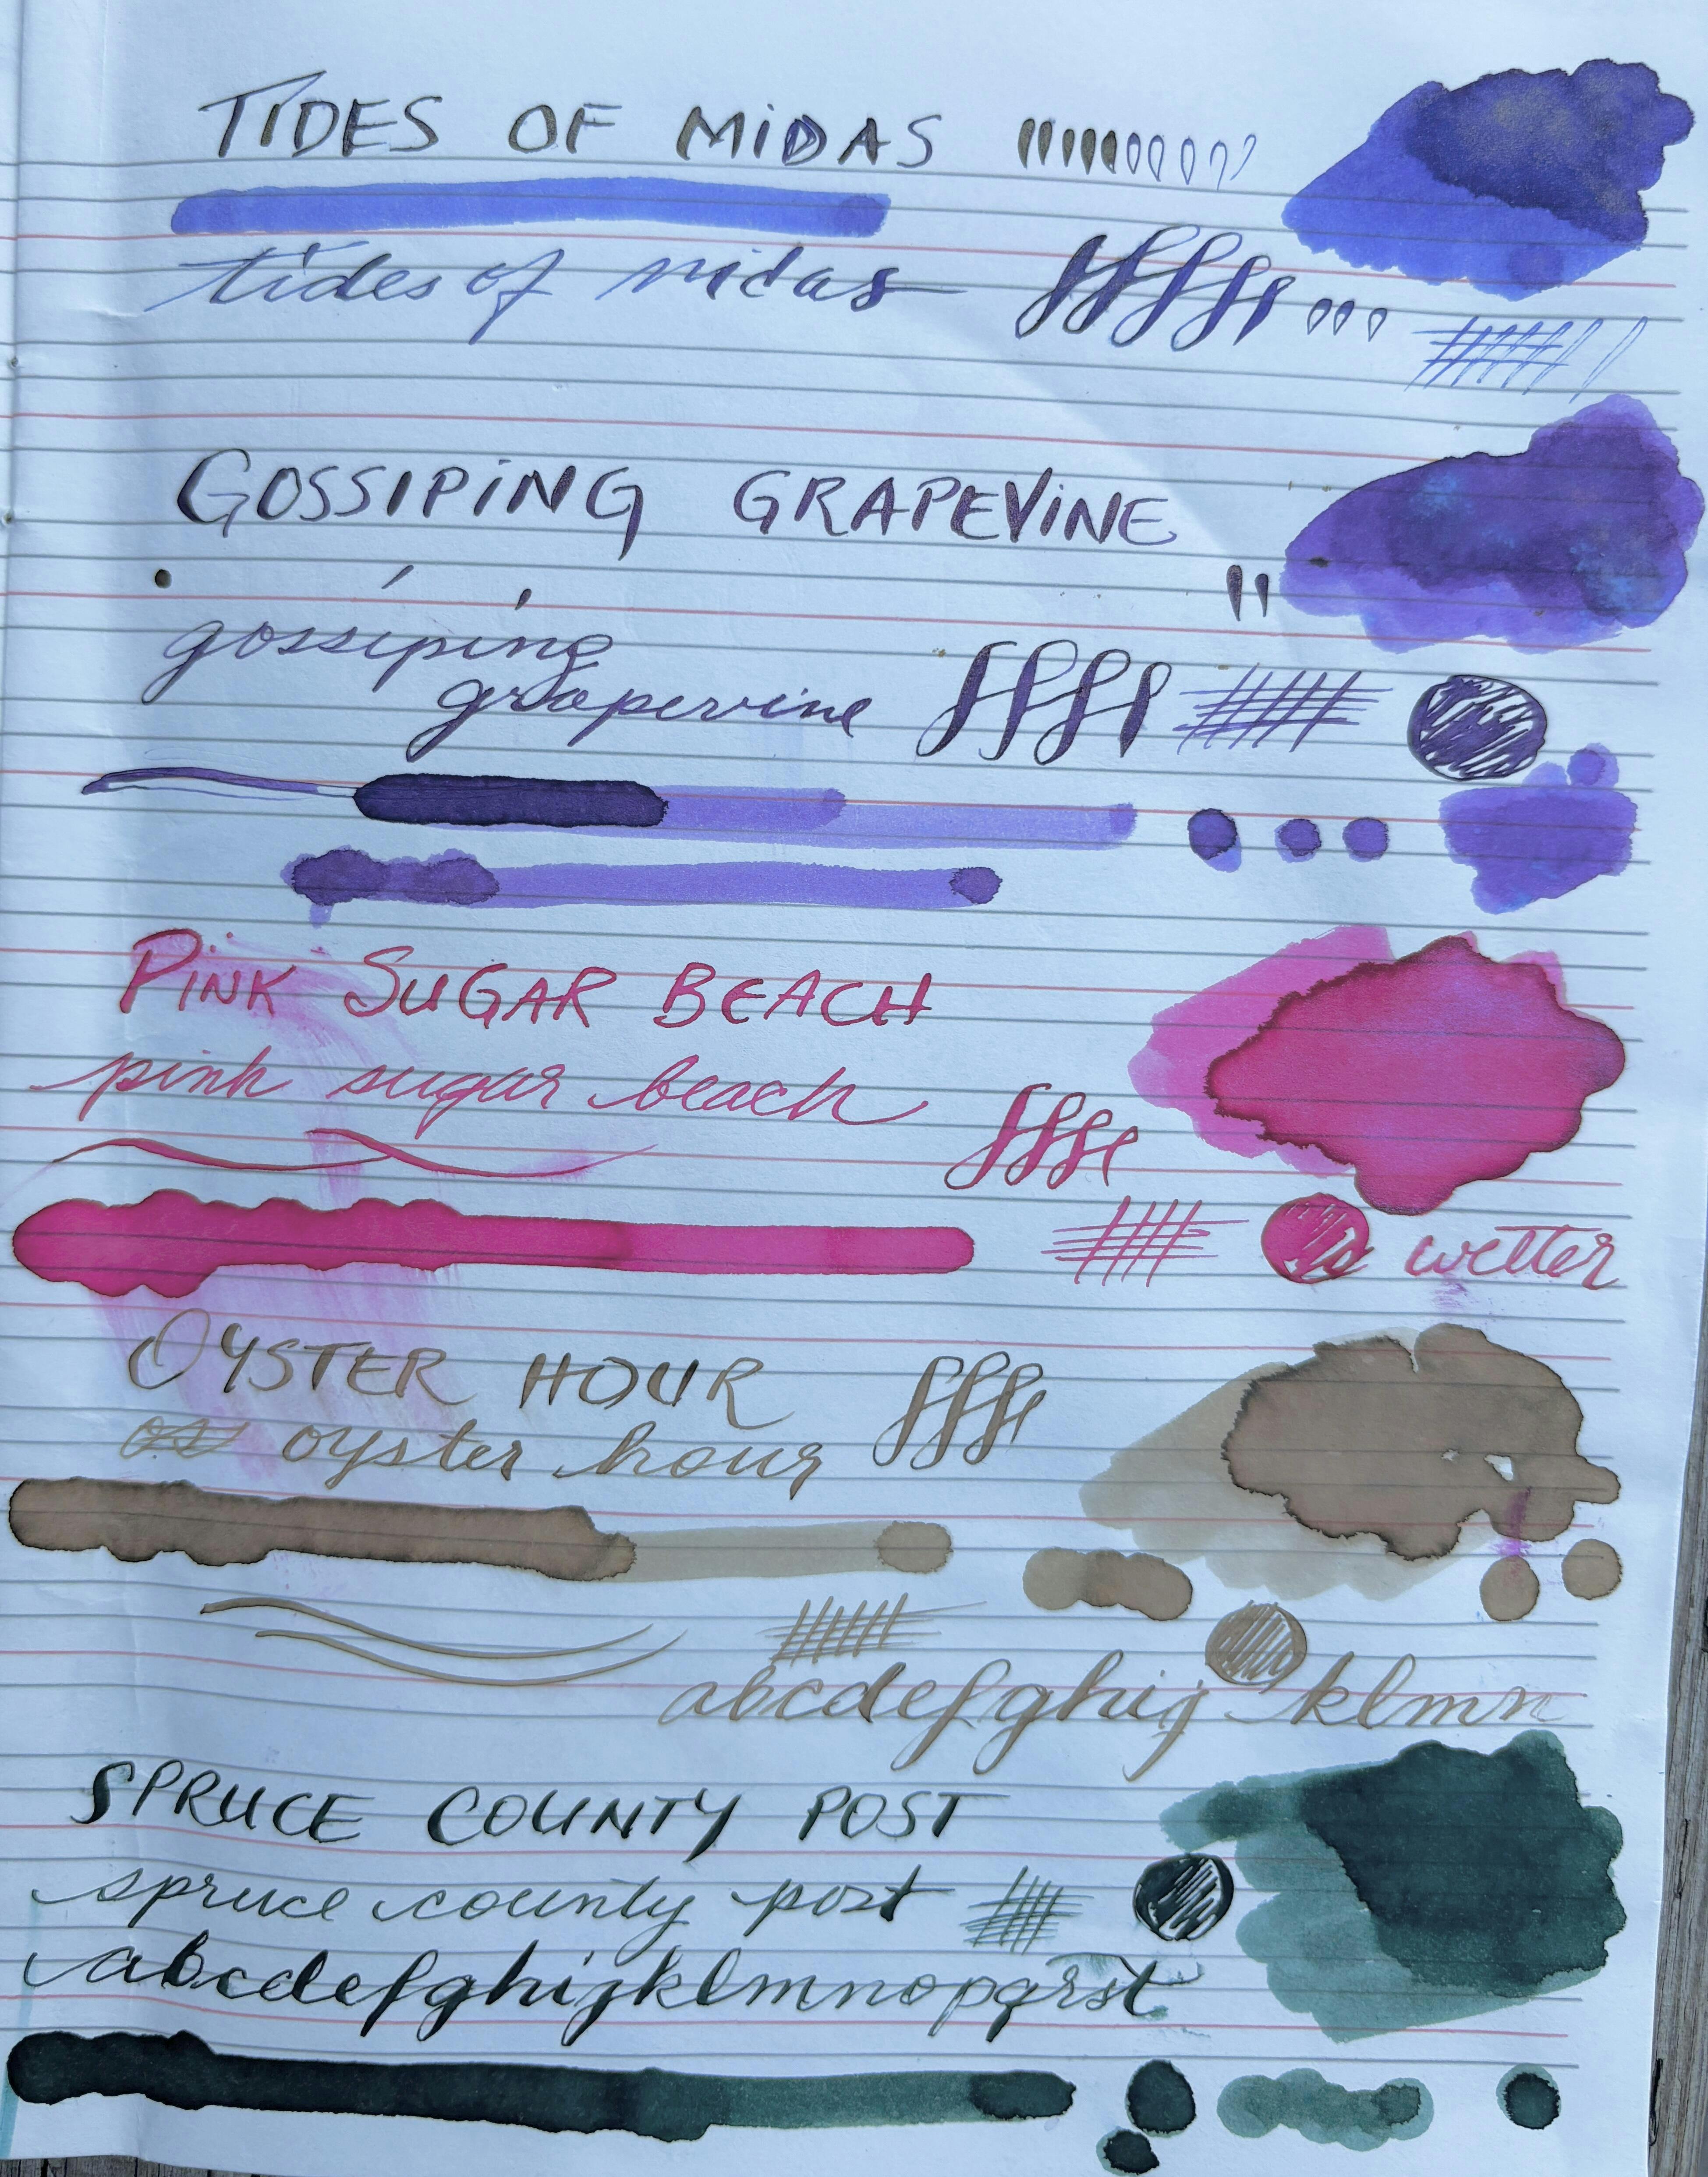 TIDES OF MIDAS
tides of midas
GOSSIPING GRAPEVINE
gossiping
grapevine
PINK SUGAR BEACH
pink sugar beach
wetter
OYSTER HOUR
oyster hour
abcdefghij klmn
SPRUCE COUNTY POST
spruce county post
abcdefghijklmnopqrst